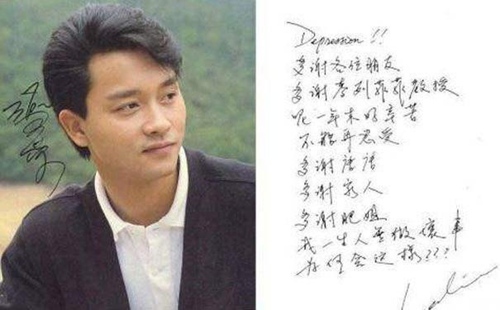 Depression!!
多謝各位朋友
多謝李列菲菲教授
呢一年來好辛苦
不能再忍受
多謝唐唐
多謝家人
多謝肥姐
我一生人無做壞事
為何會這樣???
Leslie